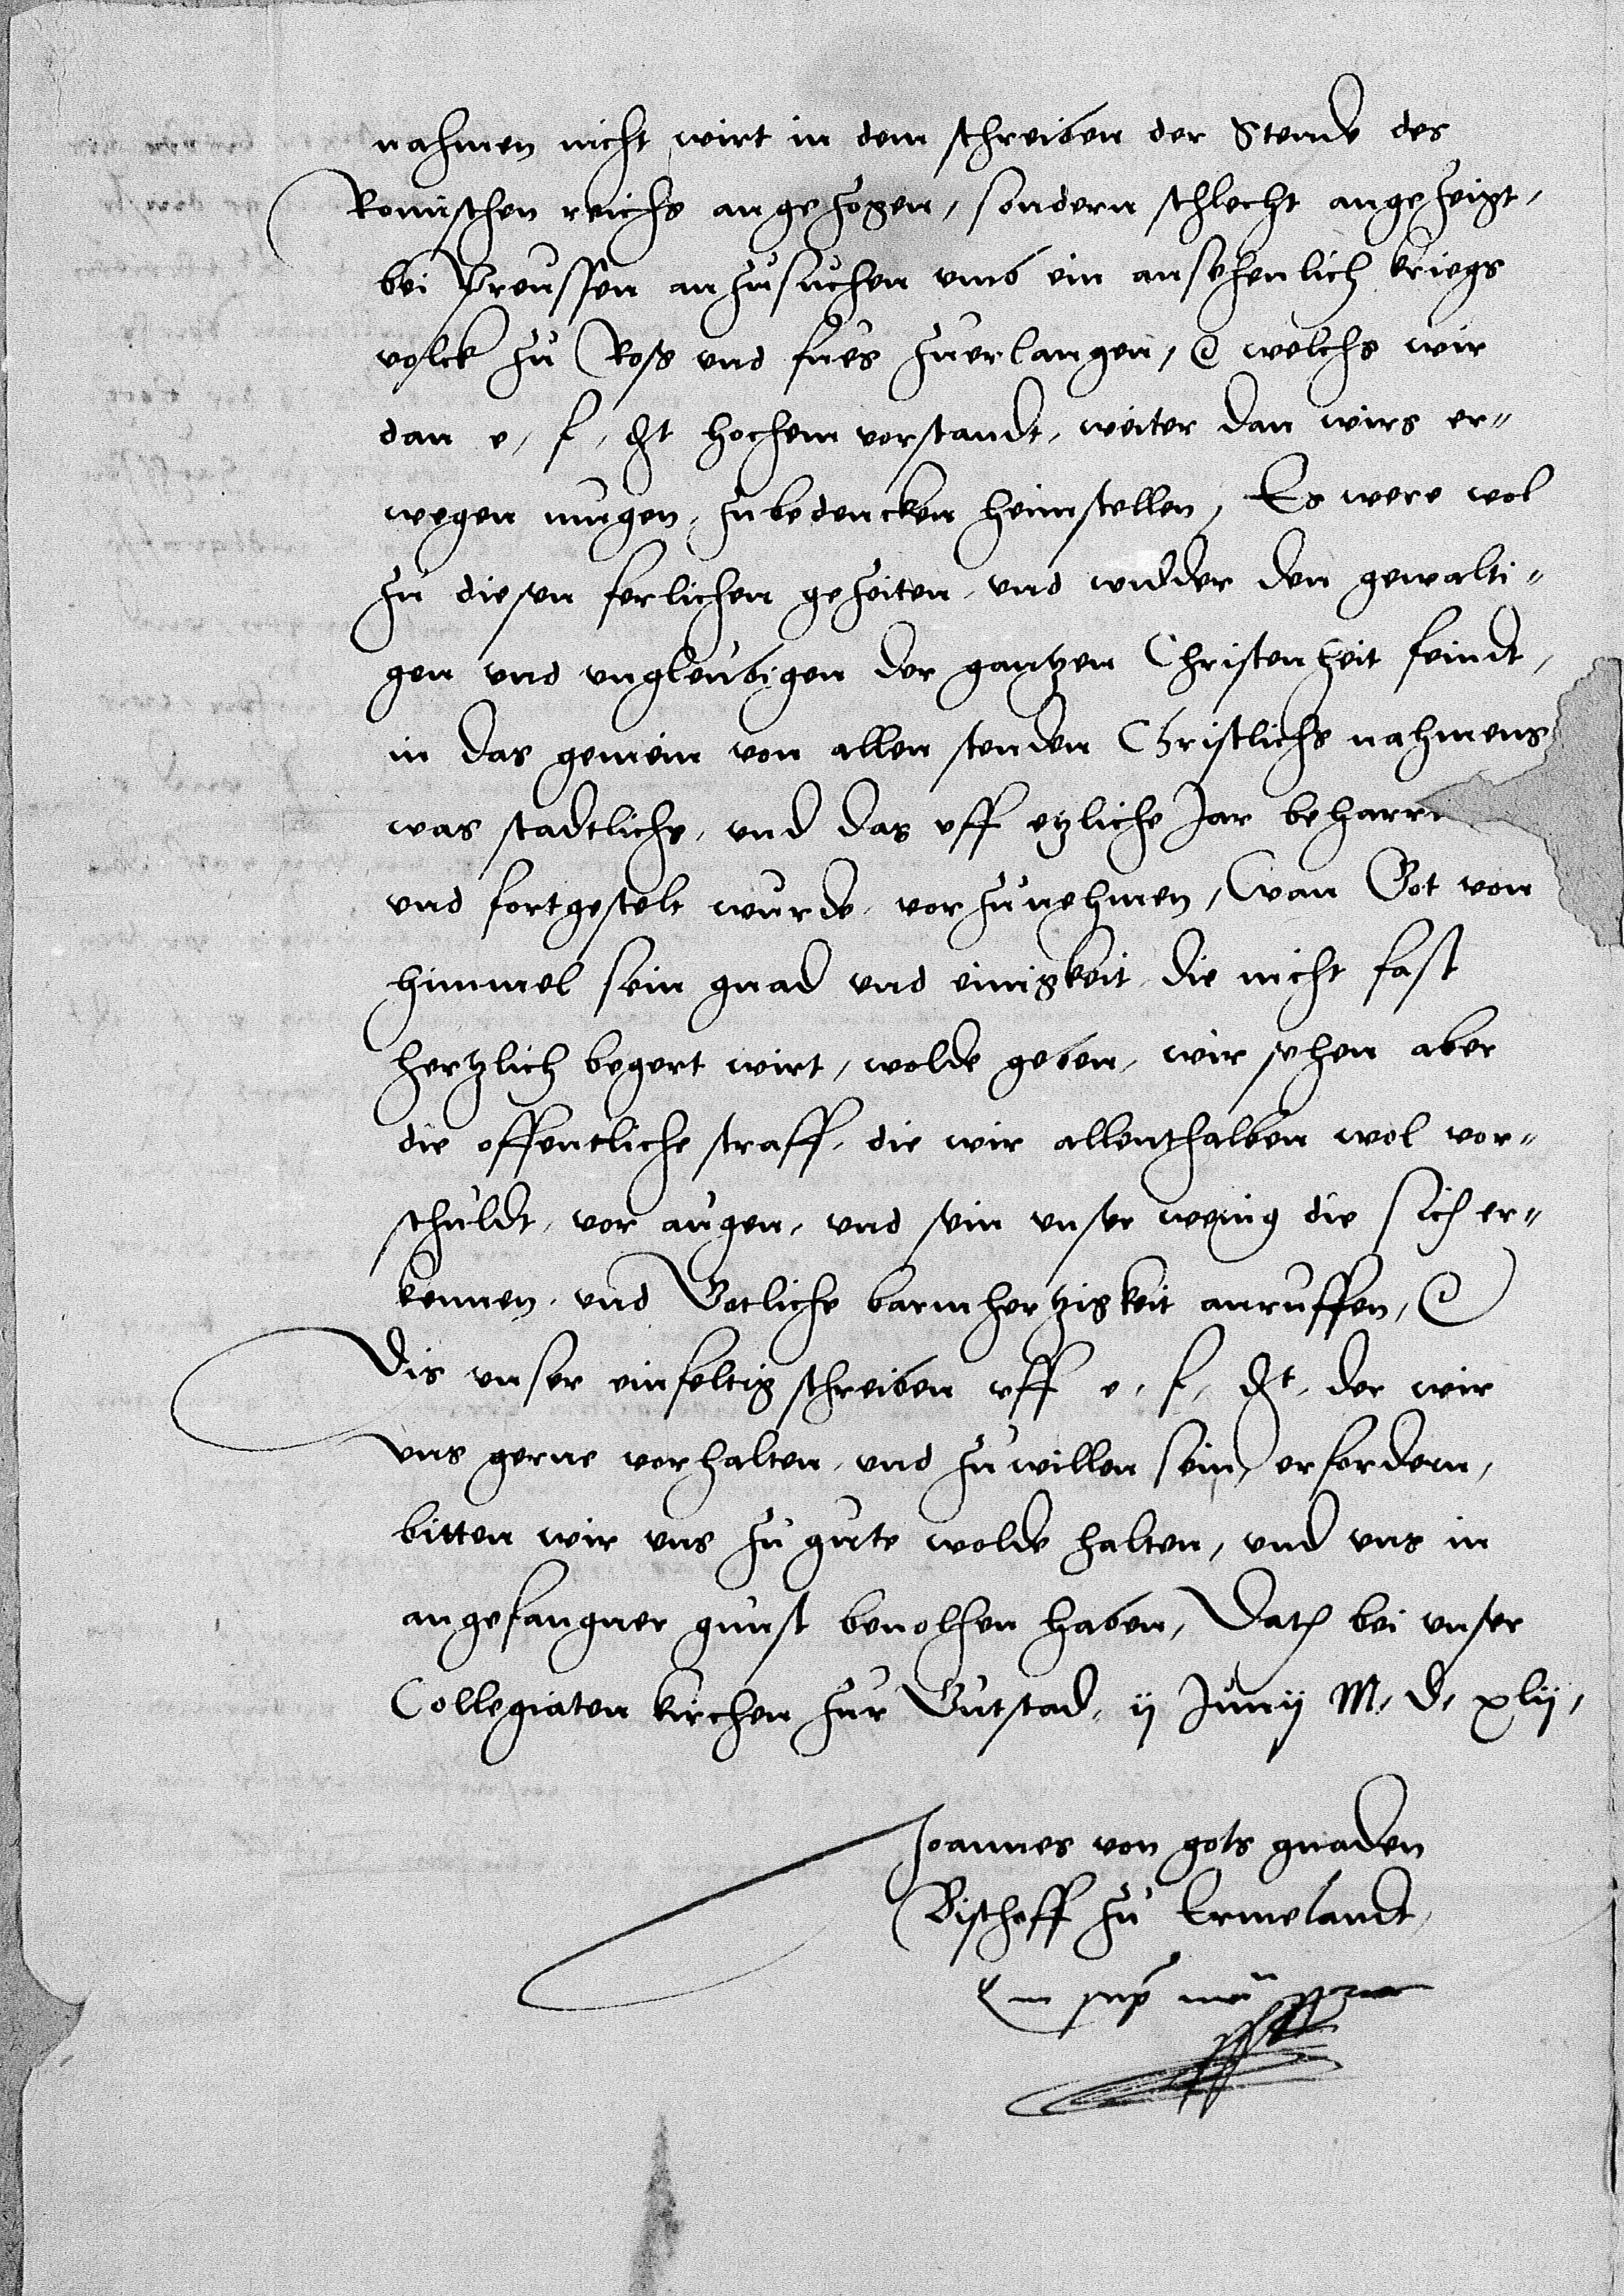 nahmen nicht wirt in dem schreiben der Stende des
Romischen reichs angezogen, sondern schlecht angezeigt,
bei Preussen anzusuchen umb ein ansehenlich kriegs
volck zu Ross und fues zuerlangen, ⁊c welchs wir
dan e, f, dt hochem vorstandt, weiter dan wirs er-
wegen mugen, zubedencken heimstellen, Es were wol
zu diesen ferlichen gezeiten, und widder den gewalti-
gen und ungleubigen der gantzen Christenheit feindt,
in das gemein von allen stenden Christlichs nahmens
was stadtlichs, und das uff etzliche Jar beharr
und fortgestelt wurde, vorzunehmen, wan Got von
himmel sein gnad und einigkeit, die nicht fast
hertzlich begert wirt, wolde geben, wir sehen aber
die offentliche straff, die wir allenthalben wol vor-
schuldt, vor augen, und sein unser wenig die sich er-
kennen, und Gotliche barmhertzigkeit anruffen, ⁊c
Dis unser einfeltig schreiben uff e, f, dt, der wir
uns gerne vorhalten, und zuwillen sein, erfordern,
bitten wir uns zu gute wolde halten, und uns in
angefangner gunst bevolhen haben, Dat bei unser
Collegiaten kirchen zur Gutstad, ij Junij M, d, xlij,
Joannes von gots gnaden
Bischoff zu Ermelandt,